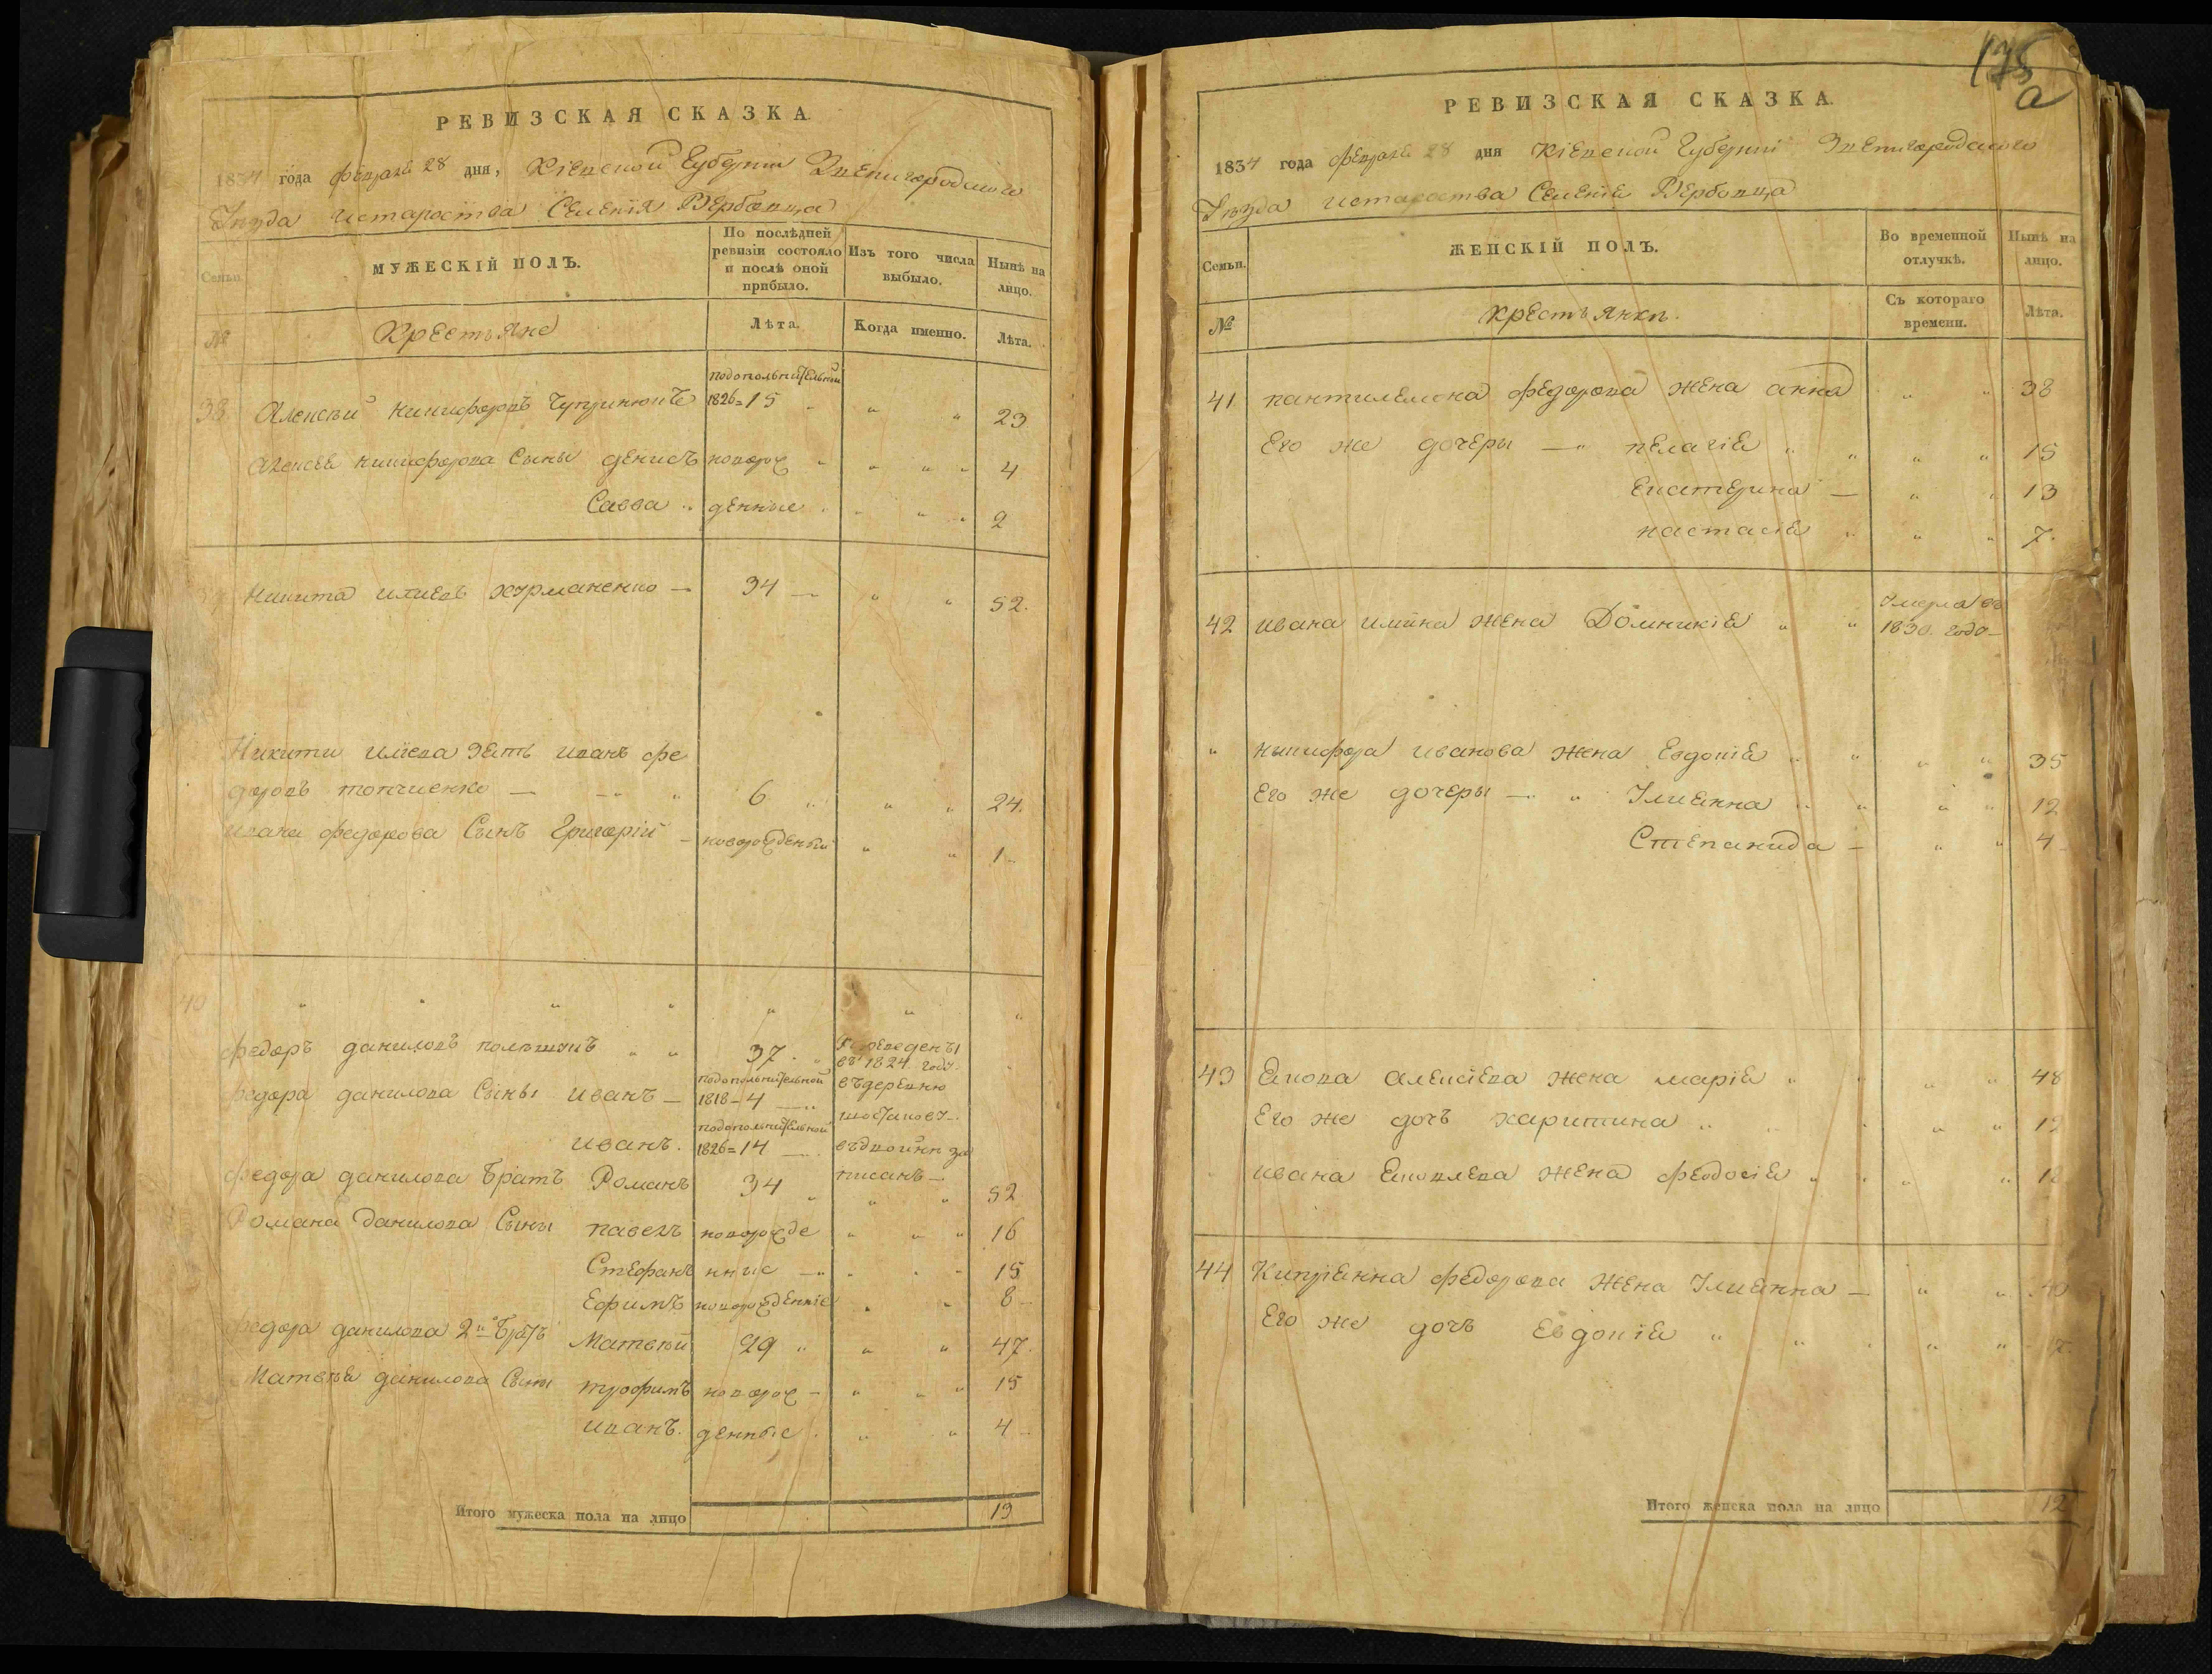 РЕВИЗСКАЯ СКАЗКА.
1834 года февраля 28 дня, Кіевской Губерніи Звенигородского
Уезда староства Селенія Вербовца
Семьи.
МУЖЕСКІЙ ПОЛЪ.
По послѣдней ревизіи состояло и послѣ оной прибыло.
Изъ того числа выбыло.
Нынѣ на лицо.
№
Крестьяне
Лѣта.
Когда именно.
Лѣта.
подополнительной
38 Алексѣй Никифоровъ 1826=15 " " 23
Алексѣя Никифорова Сыны Денисъ новорож " " " 4
Савва " денные " " " 2
Никита илиевъ журманенко — 34 — " " 52.
Никити илиева зять иванъ фе
доровъ топчиенко — — " 6 " " " 24.
ивана федорова Сынъ Григорій — новорожденый " " 1 —
40 " " " " " " "
федоръ даниловъ " " 37 " Переведенъ
въ 1824 году.
подополнительной въ деревню
федора данилова Сыны иванъ — 1818=4 —
подополнительной
иванъ. 1826=14 — въдвойнѣ за
писанъ —
федора данилова братъ Романъ 34 " " " 52
Романа данилова Сыны павелъ новорожде " " " 16
Стефанъ нные — " " " 15
Ефимъ новорожденніе " " 8 —
федора данилова 2й братъ Матвѣй 29 " " " 47.
Матвѣя данилова Сыны трофимъ новорож — " " " 15
иванъ. денные " " 4 —
Итого мужеска пола на лицо 13
175
а
РЕВИЗСКАЯ СКАЗКА.
1834 года февраля 28 дня Кіевской Губерніи Звенигородского
Уезда староства Селеніе Вербовца
Семьи.
ЖЕНСКІЙ ПОЛЪ.
Во временной отлучкѣ.
Нынѣ на лицо.
№
Крестьянки.
Съ котораго времени.
Лѣта.
41 пантилемона федорова жена анна " " 38
Его же дочеры — " пелагіе " " " " 15
Екатерина — " " 13
настасіе " " " 7.
Умерла въ
42 ивана илина жена Домникіе " " 1830 году —
" Никифора иванова жена Евдокіе " " " " 35
Его же дочеры — " Улиянна " " " " 12
Степанида — " " 4
43 Якова Алексіева жена маріе " " " " 48
Его же дочъ харитина " " " " 12
ивана Яковлева жена феодосіе " " " " 18
44 Кипріянна федорова жена Улиянна — " " 40
Его же дочъ Евдокіе " " " " 7.
Итого женска пола на лицо 12